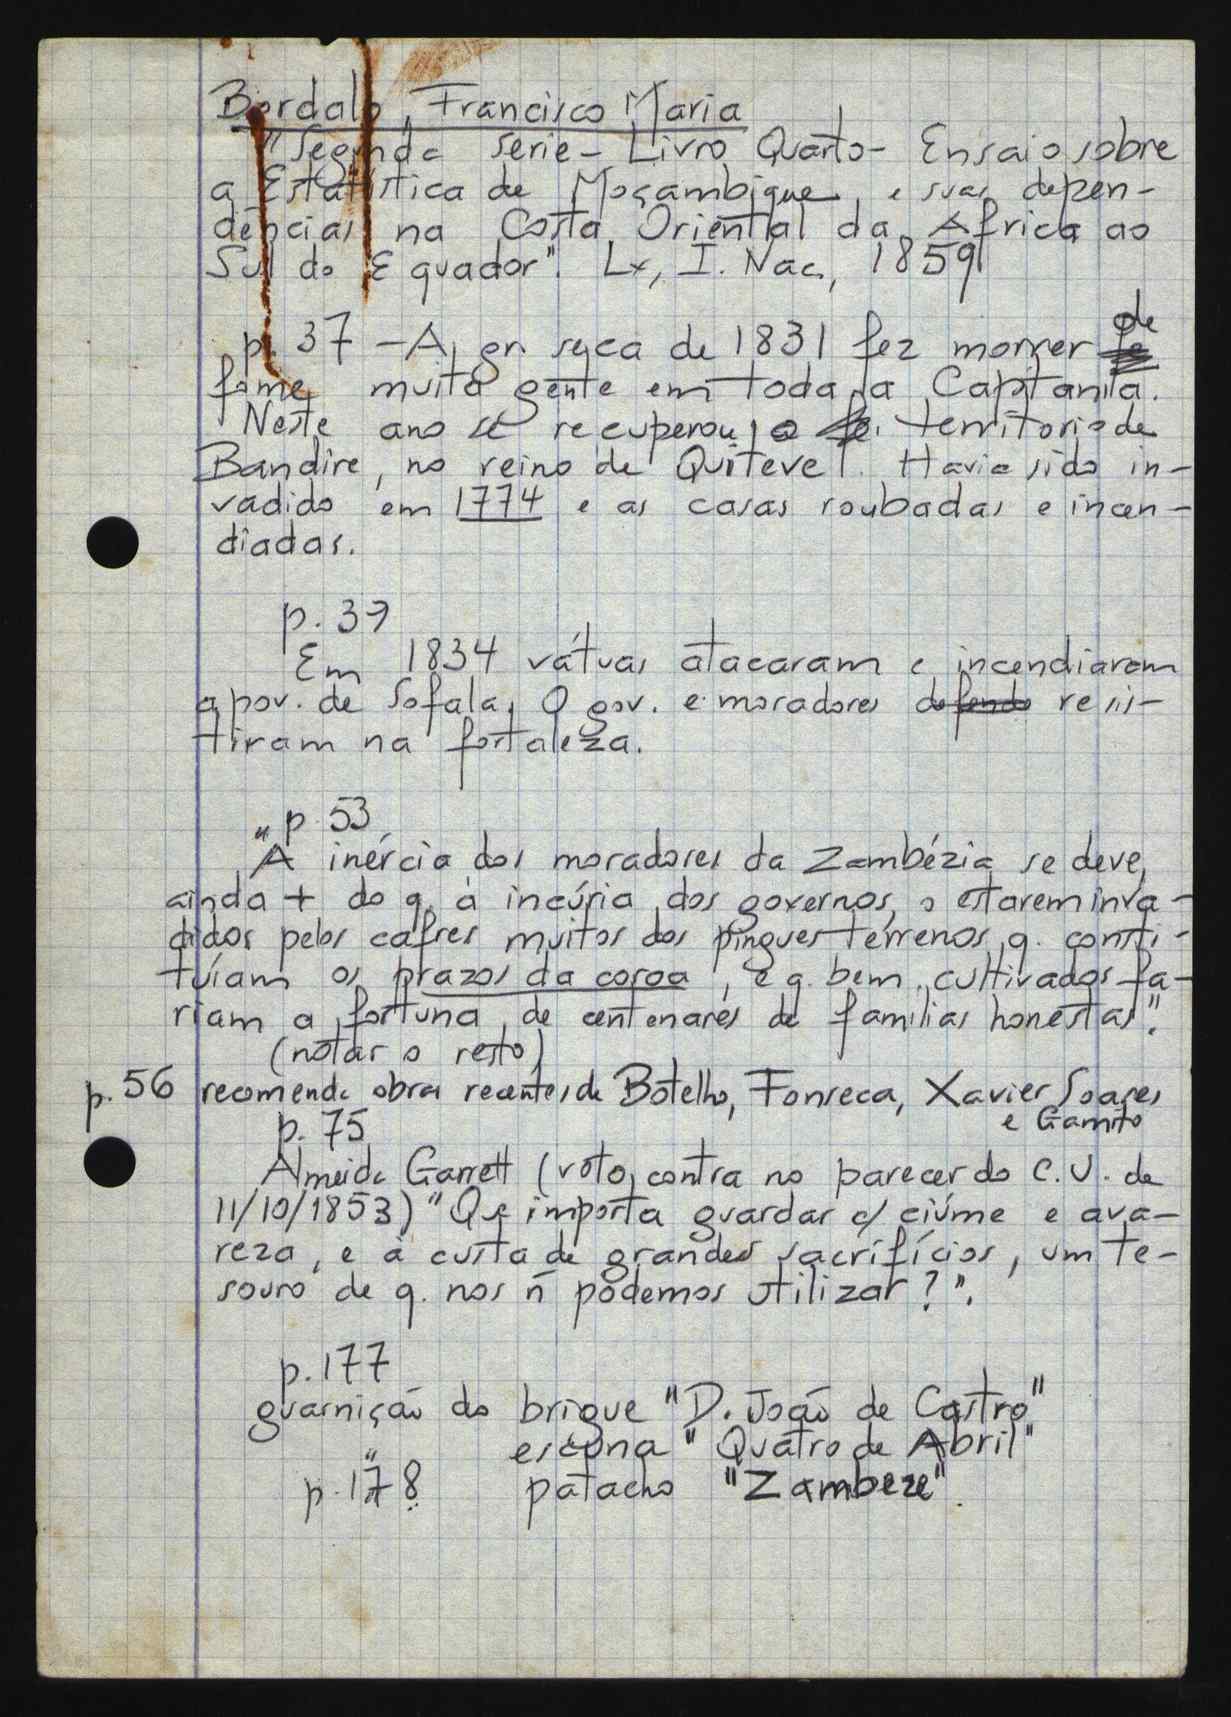 Bordalo, Francisco Maria
"Segunda serie - Livro Quarto - Ensaio sobre
a Estatística de Moçambique, e suas depen-
dências na Costa Oriental da Africa ao
Sul do Equador". Lx, I. Nac., 1859
p. 37 - A gr. seca de 1831 fez morrer de
fome muita gente em toda a Capitania.
Neste ano se recuperou o territorio de
Bandire, no reino de Quiteve. Havia sido in-
vadido em 1774 e as casas roubadas e incen-
diadas.
p. 39
Em 1834 vátuas atacaram e incendiaram
a pov. de Sofala. O gov. e moradores defende resis-
tiram na fortaleza.
p 53
"A inércia dos moradores da Zambézia se deve,
ainda + do q. à incúria dos governos, o estarem inva-
didos pelos cafres muitos dos pingues terrenos q. consti-
tuíam os prazos da coroa, e q. bem cultivados fa-
riam a fortuna de centenares de familias honestas".
(notar o resto)
p. 56 recomenda obras recentes de Botelho, Fonseca, Xavier, Soares
e Gamito
p. 75
Almeida Garrett (voto contra no parecer do C.U. de
11/10/1853) "Que importa guardar c/ ciúme e ava-
reza, e à custa de grandes sacrifícios, um te-
souro de q. nos ñ podemos utilizar?".
p. 177
guarnição do brigue "D. João de Castro"
" escuna "Quatro de Abril"
p. 178 " patacho "Zambeze".